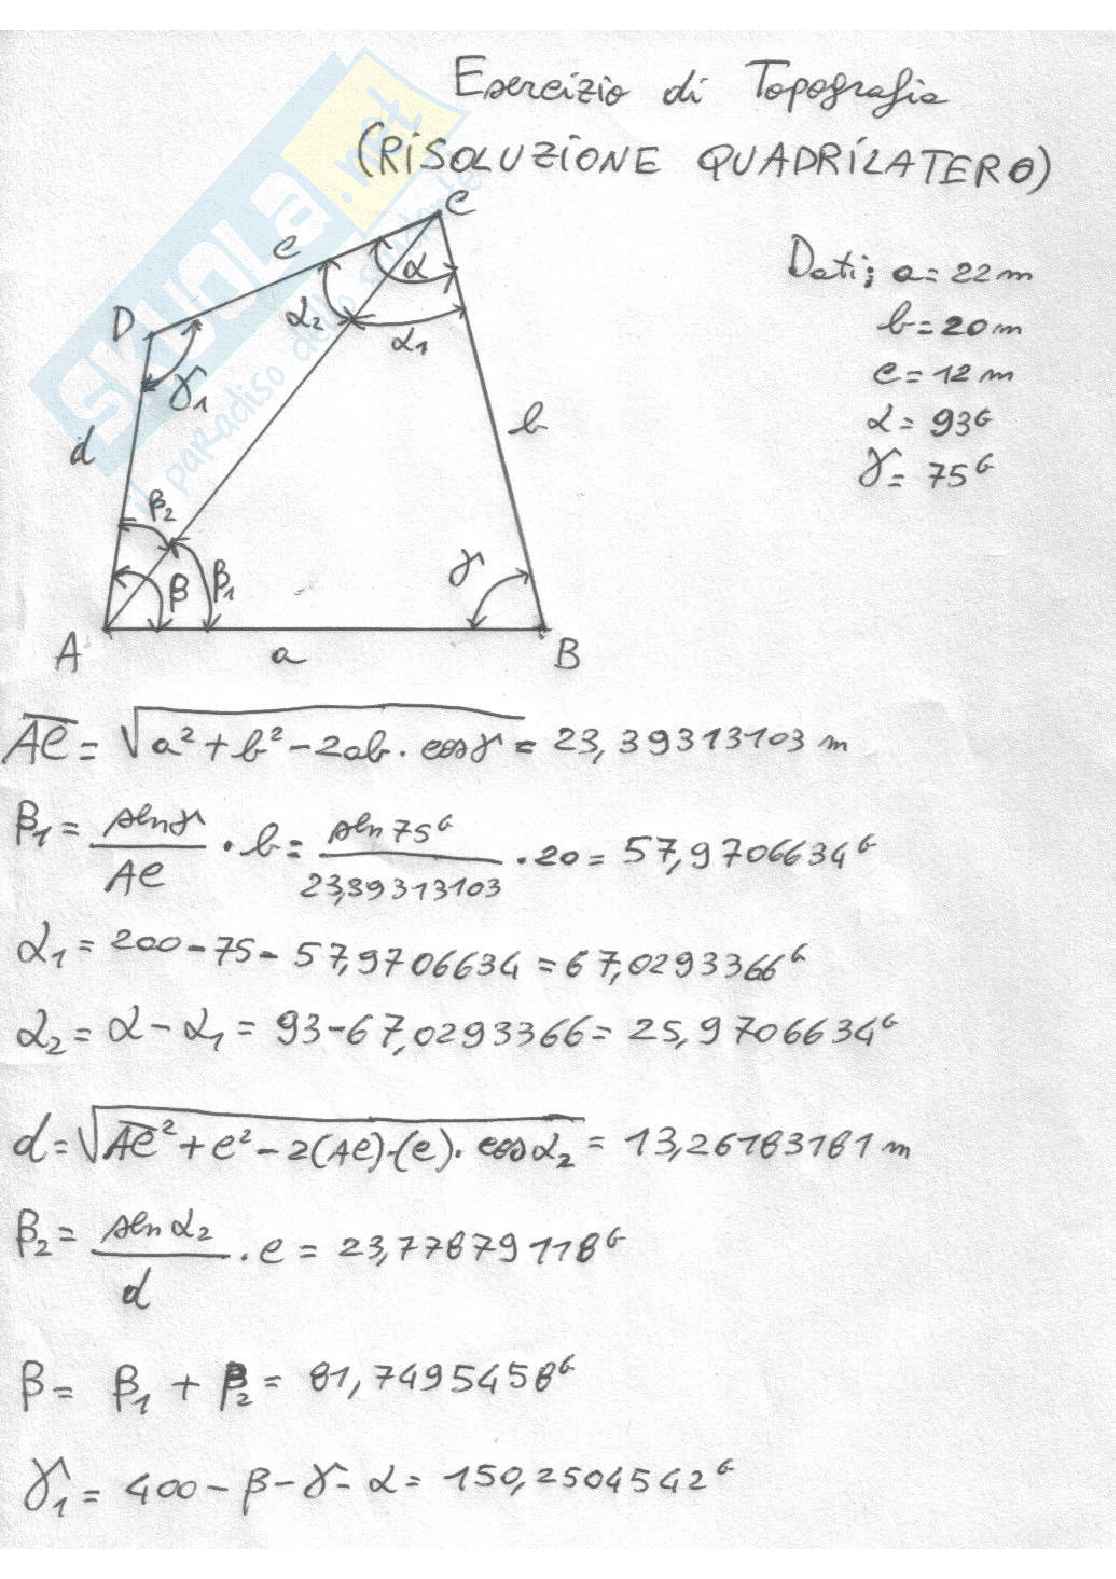 Esercizio di Topografia
(RISOLUZIONE QUADRILATERO)
SKUOLA.net
il paradiso dello
Dati; a = 22 m
b = 20 m
c = 12 m
α = 93ᴳ
γ = 75ᴳ
C
c
α
D
α₂
α₁
γ₁
b
d
β₂
β
β₁
γ
A
a
B
AC = √(a² + b² - 2ab · cosγ) = 23,39313103 m
β₁ = senγ / AC · b = sen 75ᴳ / 23,39313103 · 20 = 57,9706634ᴳ
α₁ = 200 - 75 - 57,9706634 = 67,0293366ᴳ
α₂ = α - α₁ = 93 - 67,0293366 = 25,9706634ᴳ
d = √(AC² + c² - 2(AC)·(c)· cosα₂) = 13,26183181 m
β₂ = senα₂ / d · c = 23,77879118ᴳ
β = β₁ + β₂ = 81,7495458ᴳ
γ₁ = 400 - β - γ - α = 150,2504542ᴳ